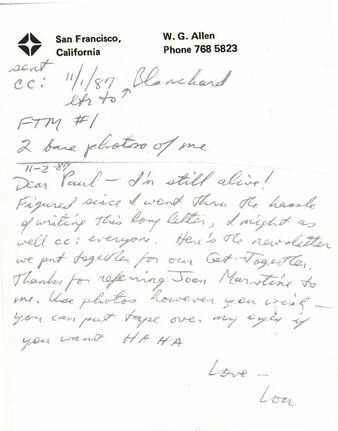 San Francisco,
California
W. G. Allen
Phone 768 5823
sent
cc: 11/1/87 Blanchard
ltr to ↑
FTM #1
2 bare photos of me
11-2-87
Dear Paul — I'm still alive!
Figured since I went thru the hassle
of writing this long letter, I might as
well cc: everyone. Here's the newsletter
we put together for our Get-Together.
Thanks for referring Joan to
me. Use photos however you wish —
you can put tape over my eyes if
you want HA HA
Love —
Lou